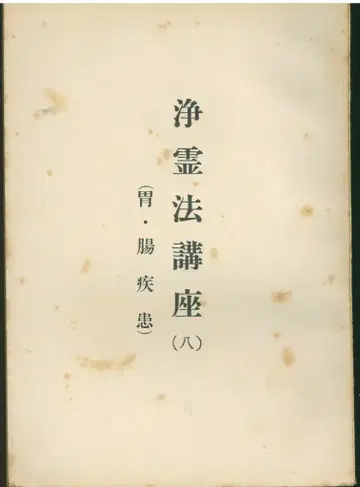 浄霊法講座(八)
(胃・腸疾患)